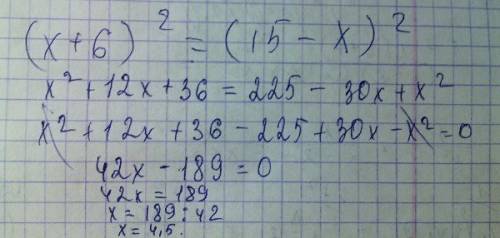 (x+6)² = (15 - x)²
x² + 12x + 36 = 225 - 30x + x²
x² + 12x + 36 - 225 + 30x - x² = 0
42x - 189 = 0
42x = 189
x = 189 : 42
x = 4,5.